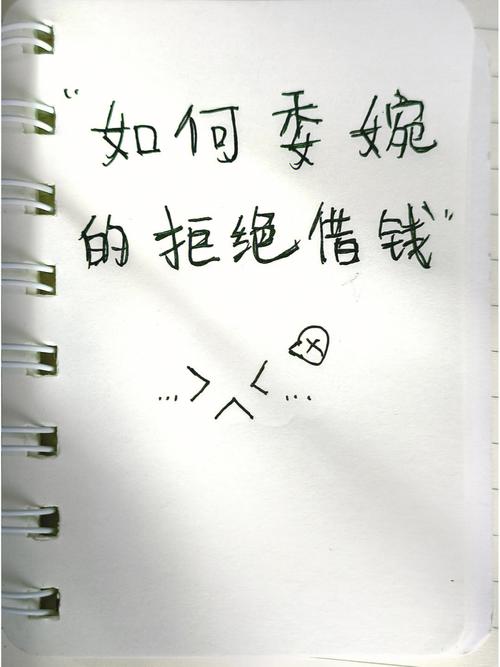 “如何委婉
的拒绝借钱”